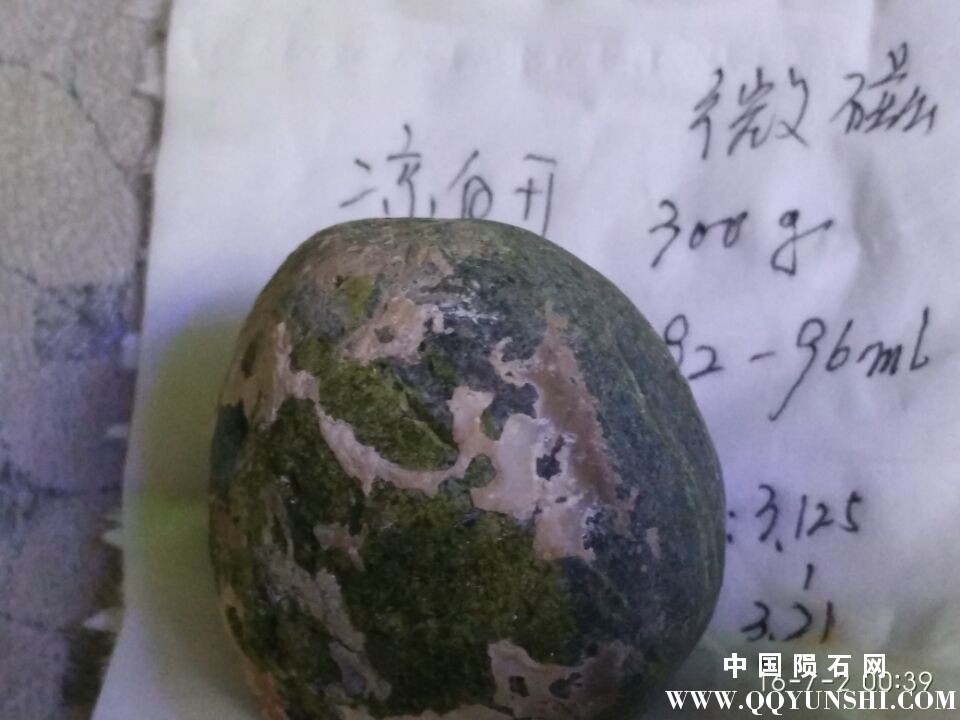 微磁
凉白开
300g
92-96ml
:3.125
3.21
中国陨石网
16-7-2 00:39
WWW.QQYUNSHI.COM